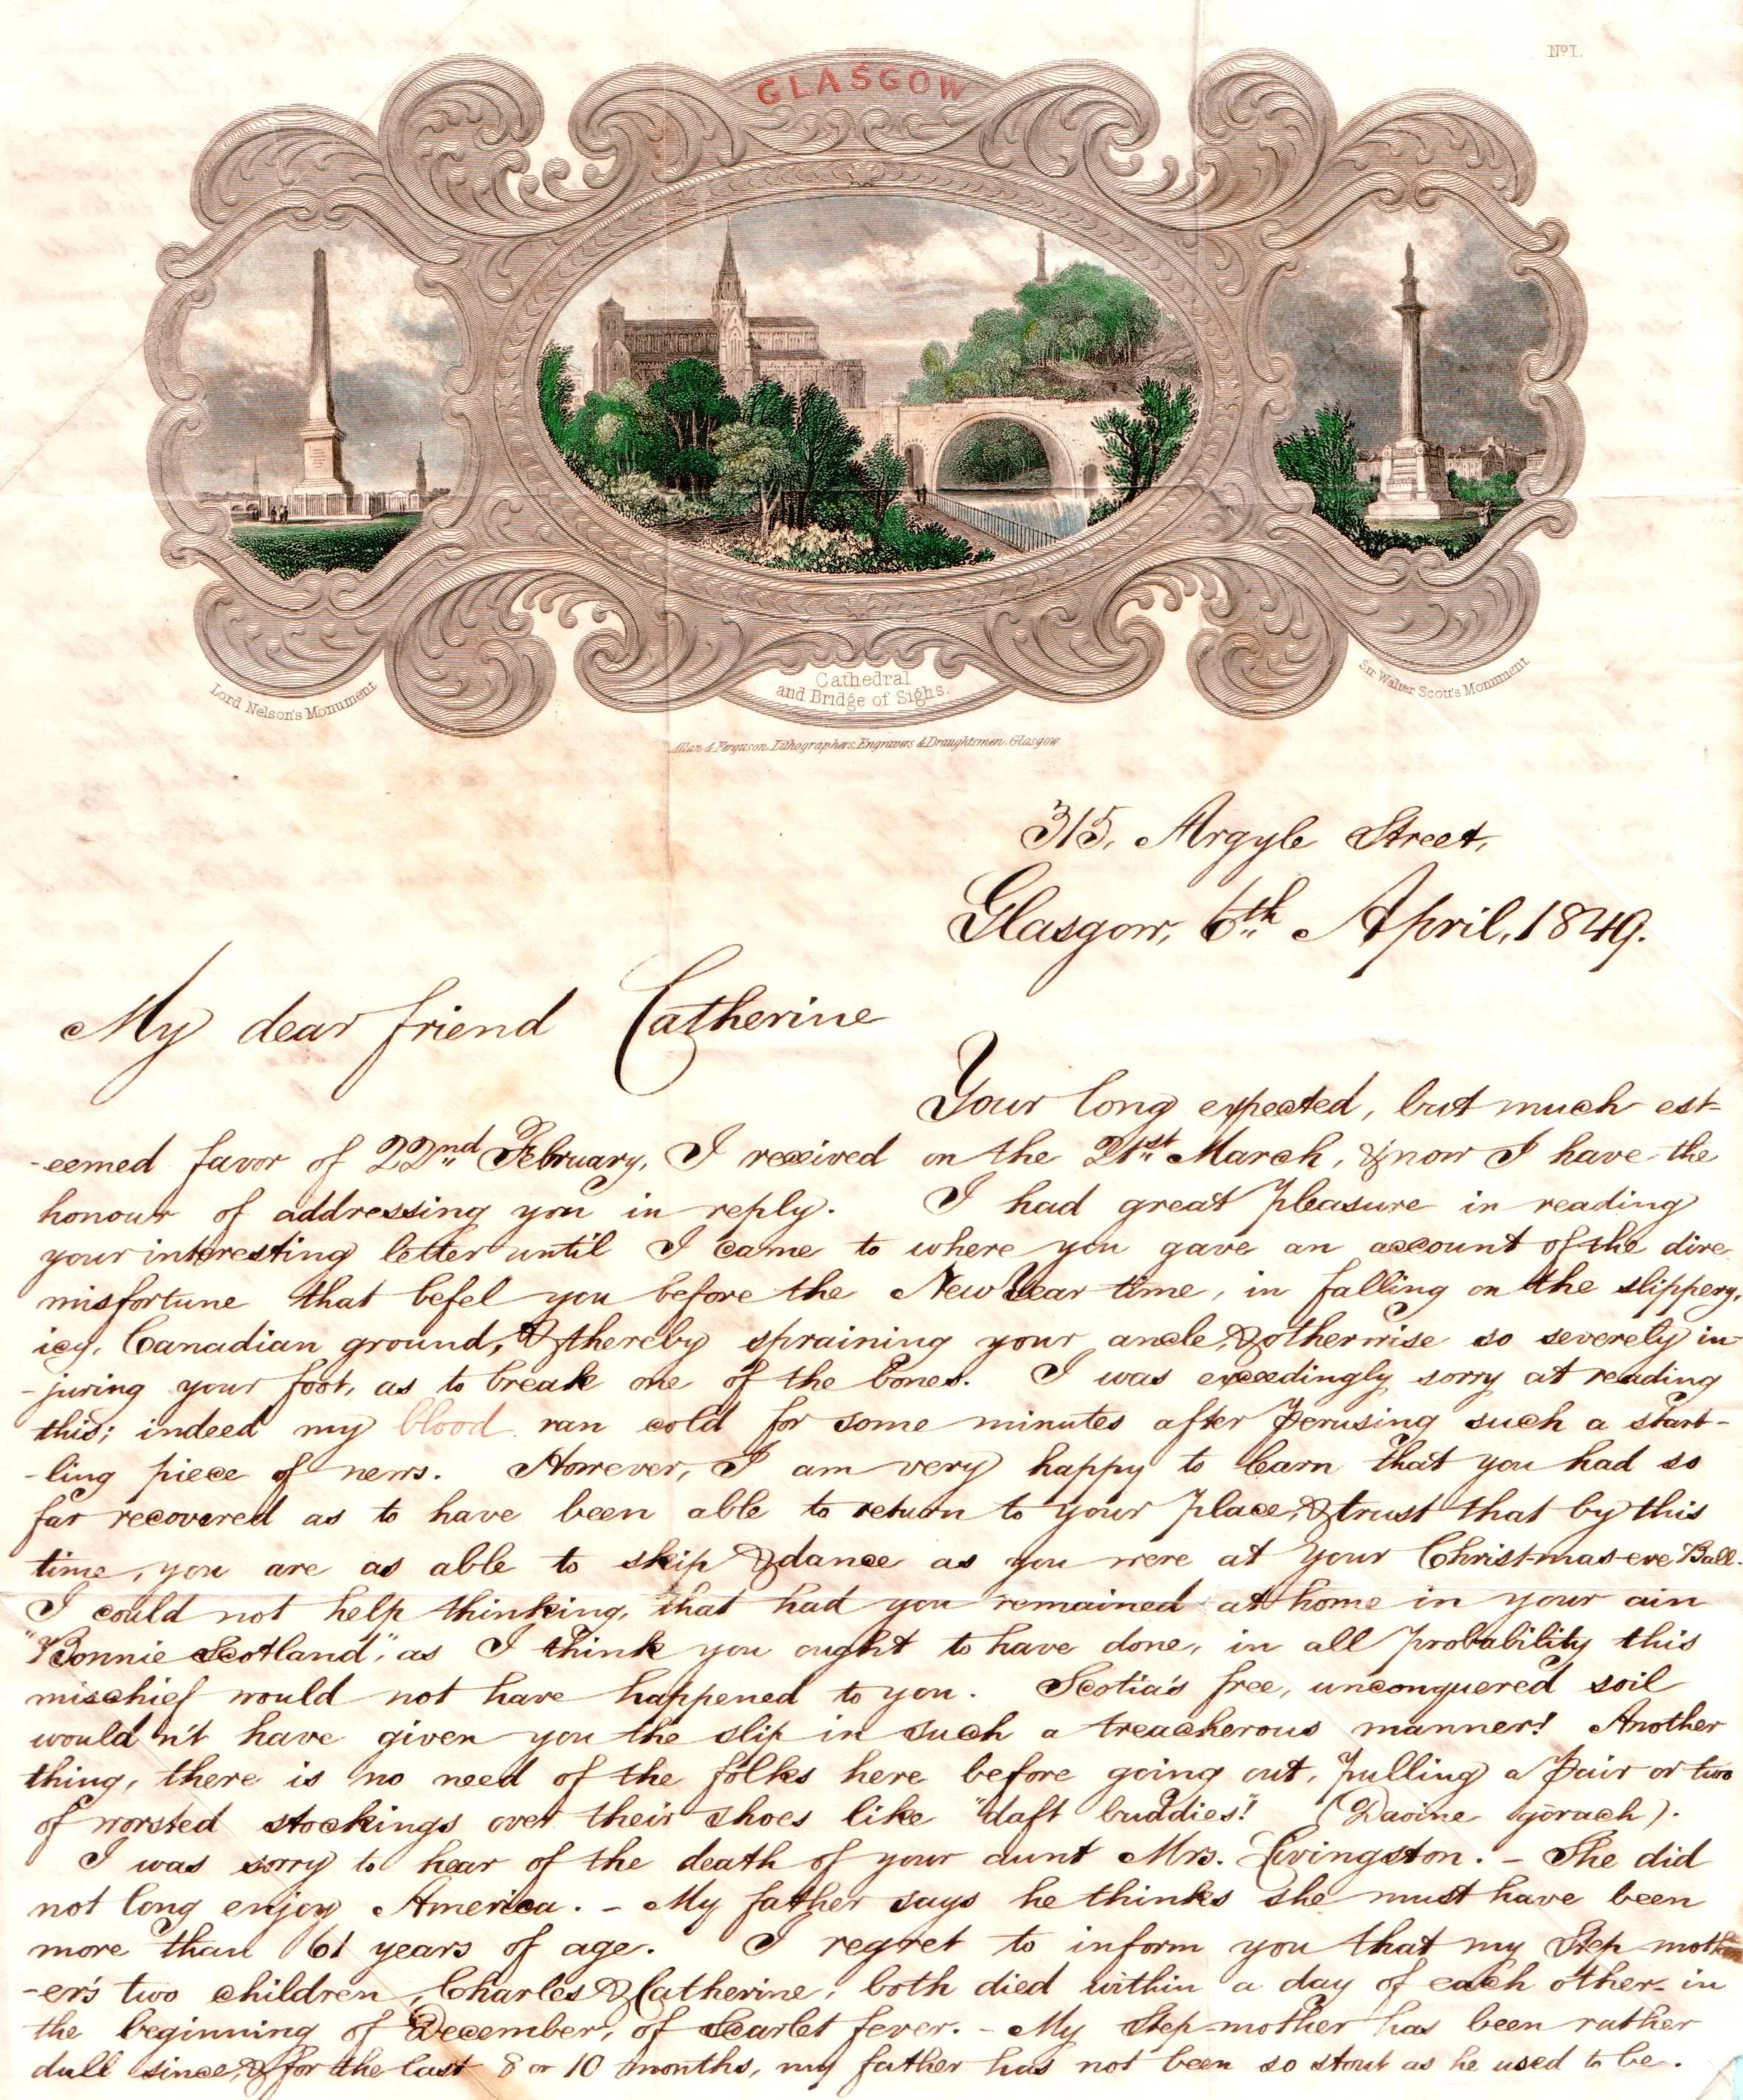 No. I.
GLASGOW
Lord Nelson's Monument
Cathedral
and Bridge of Sighs.
Sir Walter Scott's Monument
Allan & Ferguson, Lithographers, Engravers & Draughtsmen, Glasgow
315, Argyle Street,
Glasgow, 6th April, 1849.
My dear friend Catherine
Your long expected, but much est-
-eemed favor of 22nd February, I received on the 21st March, & now I have the
honour of addressing you in reply. I had great pleasure in reading
your interesting letter until I came to where you gave an account of the dire
misfortune that befel you before the New Year time, in falling on the slippery,
icy, Canadian ground, & thereby spraining your ancle, & otherwise so severely in-
-juring your foot, as to break one of the bones. I was exceedingly sorry at reading
this; indeed my blood ran cold for some minutes after perusing such a start-
-ling piece of news. However, I am very happy to learn that you had so
far recovered as to have been able to return to your place, & trust that by this
time, you are as able to skip & dance as you were at your Christ-mas-eve Ball.
I could not help thinking, that had you remained at home in your ain
"Bonnie Scotland", as I think you ought to have done, in all probability this
mischief would not have happened to you. Scotia's free, unconquered soil
would n't have given you the slip in such a treacherous manner! Another
thing, there is no need of the folks here before going out, pulling a pair or two
of worsted stockings over their shoes like "daft buddies!" (Daoine gòrach).
I was sorry to hear of the death of your aunt Mrs. Livingston. - She did
not long enjoy America. - My father says he thinks she must have been
more than 61 years of age. I regret to inform you that my Step-moth
-er's two children, Charles & Catherine, both died within a day of each other in
the beginning of December, of Scarlet fever. - My Step-mother has been rather
dull since, & for the last 8 or 10 months, my father has not been so stout as he used to be.